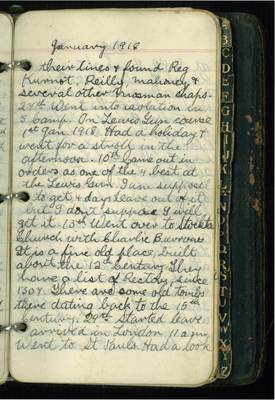 January 1918
their lines & found Reg
Kurnot, Reilly, Mahoney, &
several other Mosman chaps.
28th Went into isolation in
5 camp. On Lewis Gun course
1st Jan 1918 Had a holiday &
went for a stroll in the
afternoon. 10th Came out in
orders as one of the 4 best at
the Lewis Gun. I am suppose
to get 4 days leave out of it
but I dont suppose I will
get it. 13th Went over to
Church with Charlie
It is a fine old place, built
about the 12th Century. They
have a list of Rectors, since
1304. There are some old tombs
there dating back to the 15th
Century. 29th Started leave
arrived in London 11 am,
Went to St Pauls. Had a look
B
C
D
E
F
G
H
I
J
W
X
Y
Z